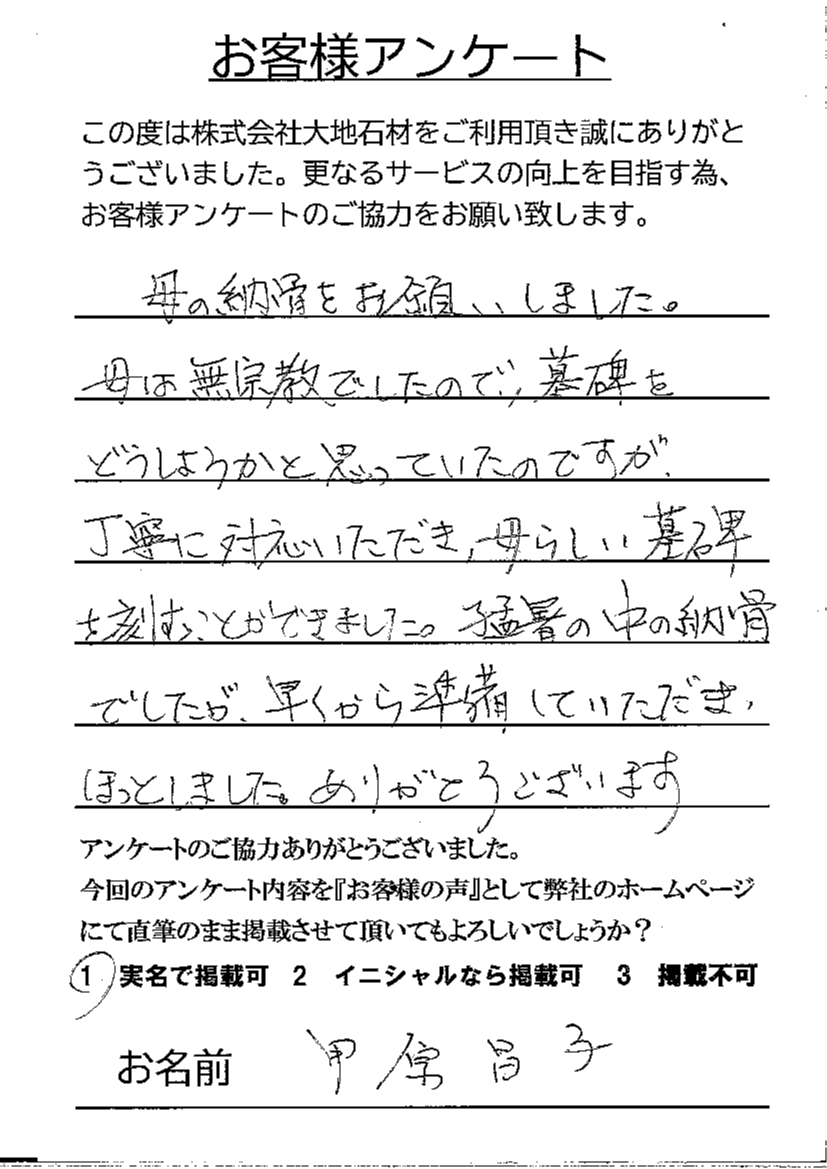 お客様アンケート
この度は株式会社大地石材をご利用頂き誠にありがと
うございました。更なるサービスの向上を目指す為、
お客様アンケートのご協力をお願い致します。
母の納骨をお願いしました。
母は無宗教でしたので、墓碑を
どうしようかと思っていたのですが、
丁寧に対応いただき、母らしい墓碑
を刻むことができました。猛暑の中の納骨
でしたが、早くから準備していただき、
ほっとしました。ありがとうございます
アンケートのご協力ありがとうございました。
今回のアンケート内容を『お客様の声』として弊社のホームページ
にて直筆のまま掲載させて頂いてもよろしいでしょうか？
1 実名で掲載可 2 イニシャルなら掲載可 3 掲載不可
お名前 甲原昌子